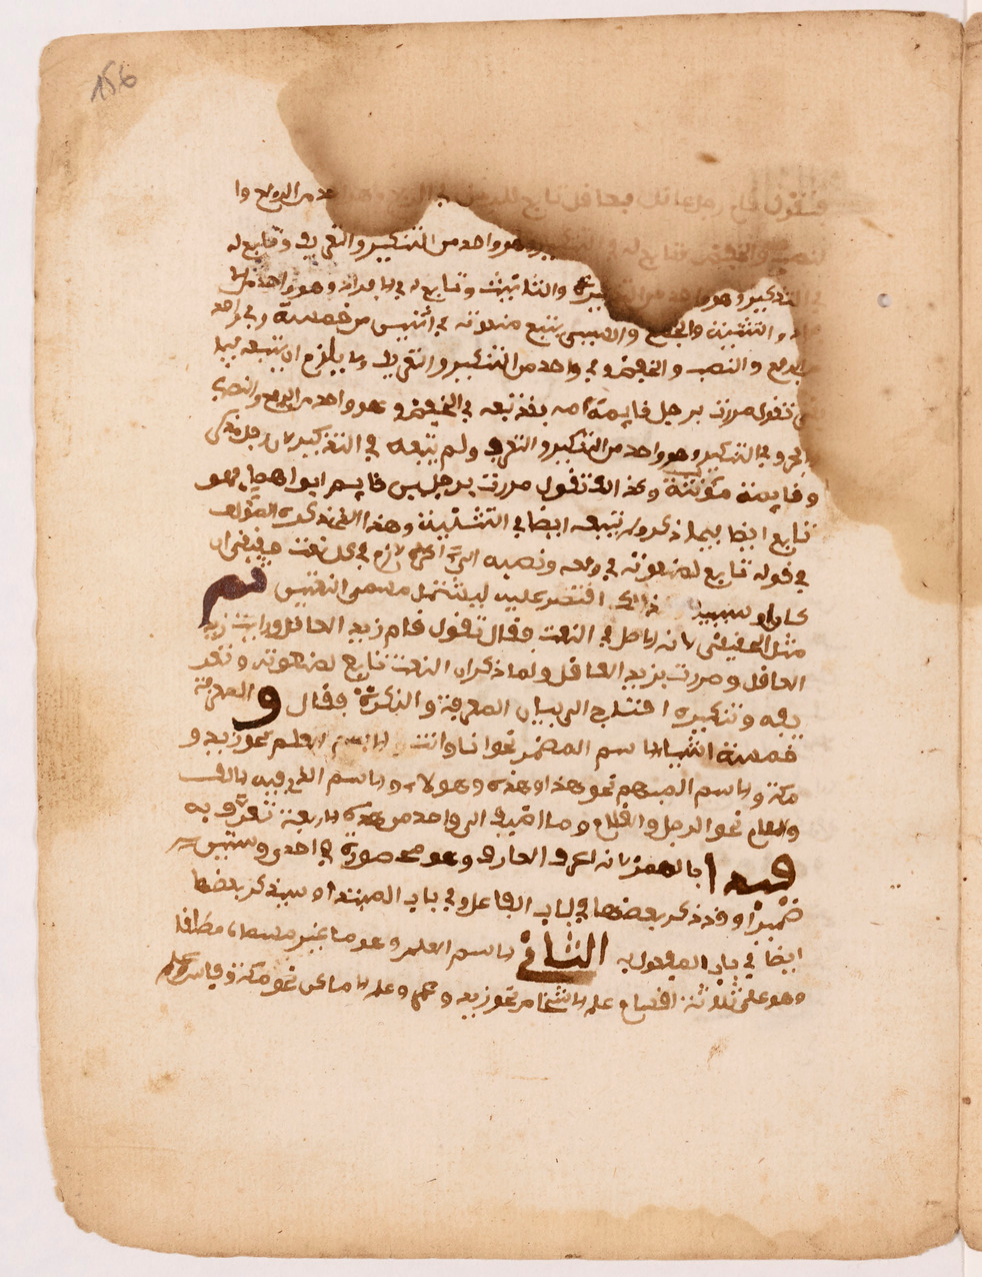 156
فتقول قام رجل عاقل فعاقل تابع للرجل في الرفع وهو واحد من الرفع وا
لنصب والخفض وتابع له في التنكير وهو واحد من التنكير والتعريف وتابع له
في التذكير وهو واحد من التذكير والتانيث وتابع له في الافراد وهو واحد من ا
والتثنية والجمع والسببي يتبع منعوته في اثنين من خمسة في واحد
الرفع والنصب والخفض وفي واحد من التنكير والتعريف ولا يلزم ان يتبعه فيما
تقول مررت برجل قايمة امه فقد تبعه في الخفض وهو واحد من الرفع والنصب
وفي التنكير وهو واحد من التنكير والتعريف ولم يتبعه في التذكير لان رجل مذكر
وقايمة مؤنثة وكذالك تقول مررت برجلين قايم ابواهما فهو
تابع ايضا فيما ذكر ولم يتبعه ايضا في التثنية وهذا الذي ذكره المؤلف
في قوله تابع لمنعوته في رفعه ونصبه الى اخره لازم في كل نعت حقيقي ان
كان او سببيا اقتصر عليه ليشتمل معنى النعتين ثم
مثل الحقيقي لانه الاصل في النعت فقال تقول قام زيد العاقل ورايت زيد
العاقل ومررت بزيد العاقل ولما ذكر ان النعت تابع لمنعوته وتعر
يفه وتنكيره احتاج الى بيان المعرفة والنكرة فقال و المعرفة
خمسة اشياء الاسم المضمر نحو انا وانت والاسم العلم نحو زيد و
مكة والاسم المبهم نحو هذا وهذه وهولاء والاسم الذي فيه الالف
واللام نحو الرجل والغلام وما اضيف الى واحد من هذه الاربعة
فبدا بالمضمر لانه اعرف المعارف وهو محصور في احدى وستين
ضميرا وقد ذكر بعضها في باب الفاعل وفي باب المبتدا وسيذكر بعضها
ايضا في باب المفعول به الثاني الاسم العلم وهو ما عين مسماه مطلقا
وهو على ثلاثة اقسام علم الاشخاص نحو زيد و وعلم الاماكن نحو مكة